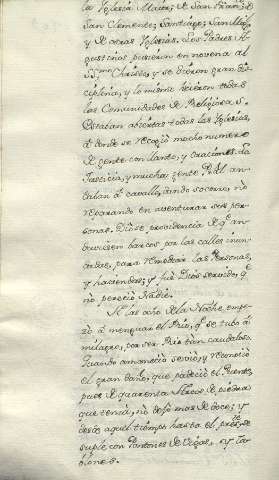 la Yglesia Maior, de San Franco, de
San Clemente, Santiago, San Ml,
y de otras Yglesias. Los Padres Ag-
ustinos pusieron en novena al
SSmo Christo, y se dieron gran di-
ciplina, y lo mismo hicieron todas
las Comunidades de Religiosos.
Estaban abiertas todas las Yglesias,
a donde se recogió mucho numero
de gente con llanto, y oraciones de
Justicia, y mucha gente Pral an-
daban a cavallo, dando socorro, no
reparando en aventurar sus per-
sonas. Diose providencia de q.e an-
duviesen barcos por las calles inun-
dadas, para remediar las Personas,
y haciendas; y fue Dios servido, q.e
no pereció Nadie.
A las ocho de la Noche, empe-
zó a menguar el Rio, q.e se tubo a
milagro, por ser Rio tan caudaloso.
Quando amaneció se vió, y reconoció
el gran daño, que padeció el Puente,
pues de quarenta Arcos de piedra
que tenía, no dejó mas de doce; y
desde aquel tiempo hasta el presente se
suple con Pontones de Vigas, y Ta-
blones.